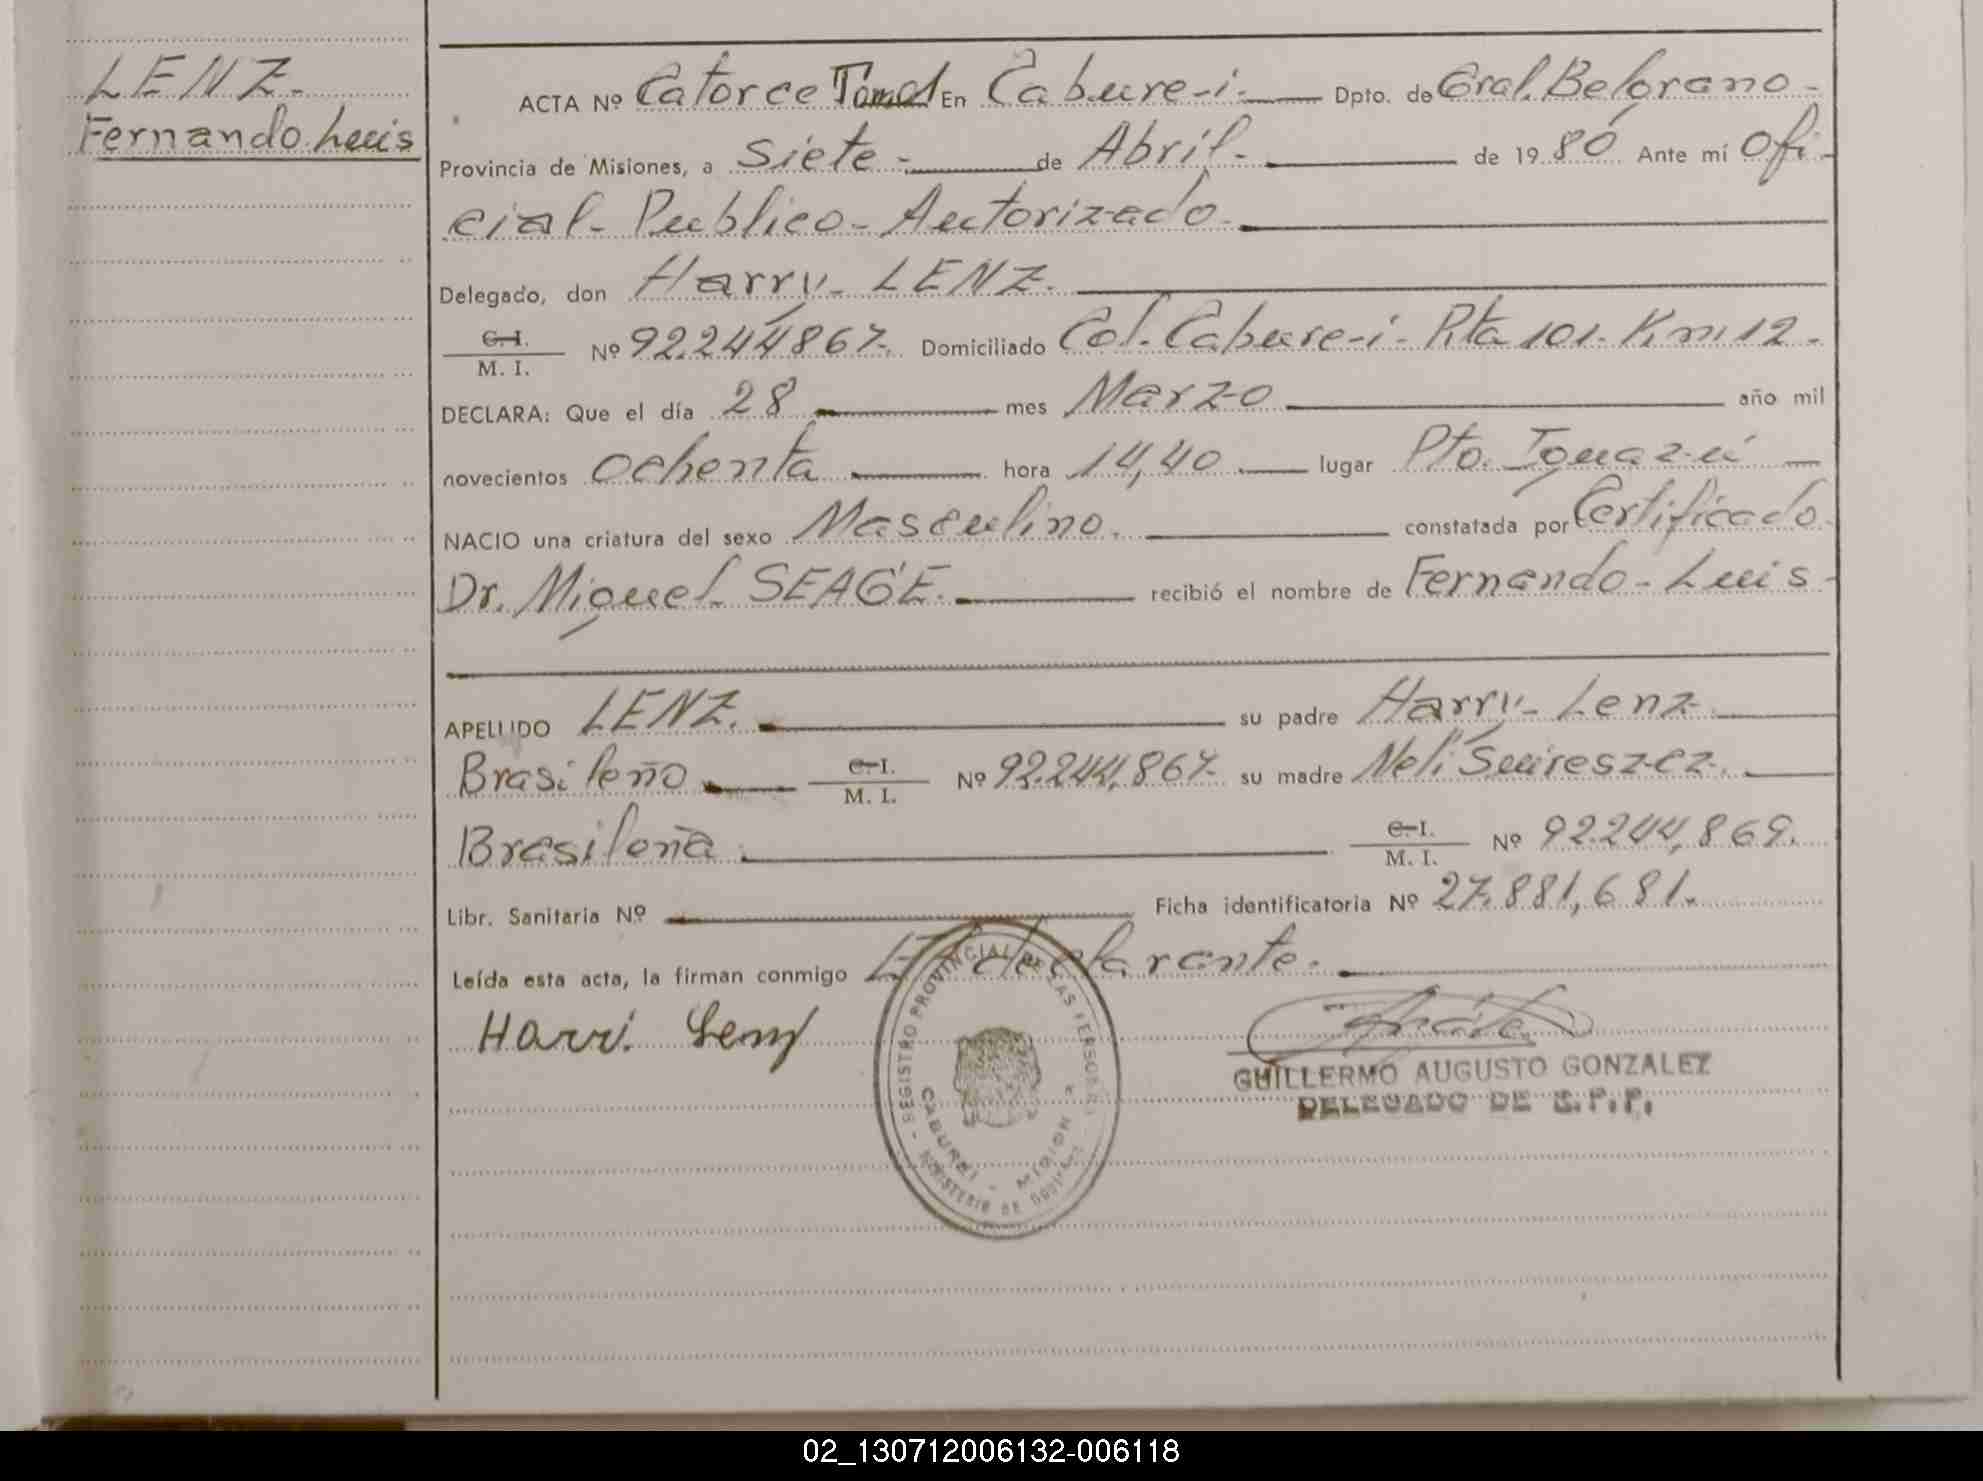 LENZ.
Fernando Luis
ACTA Nº Catorce Tomo I En Cabure-i. Dpto. de Gral. Belgrano-
Provincia de Misiones, a siete- de Abril- de 1980 Ante mí Ofi-
cial- Publico- Autorizado.
Delegado, don Harry- LENZ.
C. I.
M. I. Nº 92.244867. Domiciliado Col. Cabure-i- Rta 101. Km. 12.
DECLARA: Que el día 28 mes Marzo año mil
novecientos ochenta hora 14,40 lugar Pto. Iguazú
NACIO una criatura del sexo Masculino. constatada por Certificado
Dr. Miguel SEAGE. recibió el nombre de Fernando- Luis-
APELLIDO LENZ. su padre Harry- Lenz
Brasileño C. I. M. I. Nº 92.244,867 su madre Neli
Brasileña C. I. M. I. Nº 92.244,869.
Libr. Sanitaria Nº Ficha identificatoria Nº 27.881,681.
Leída esta acta, la firman conmigo El declarante.
Harri Lenz
GUILLERMO AUGUSTO GONZALEZ
DELEGADO DE
REGISTRO PROVINCIAL DE LAS PERSONAS
CABUREI - MISIONES
MINISTERIO DE GOBIERNO
02_130712006132-006118